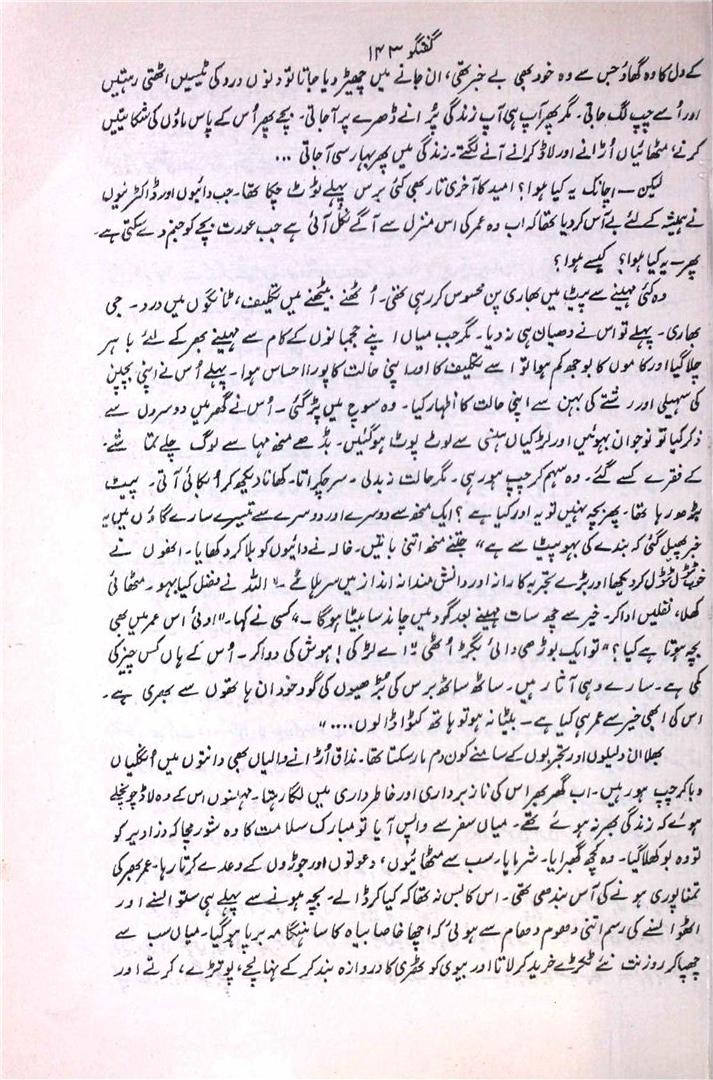 گفتگو ۱۴۳
کے دل کا وہ گھاؤ جس سے وہ خود بھی بے خبر تھی، ان جانے میں چھیڑ دیا جاتا تو دنوں درد کی ٹیسیں اٹھتی رہتیں
اور اُسے چپ لگ جاتی۔ مگر پھر آپ ہی آپ زندگی پرانے ڈھرے پر آجاتی۔ بچے پھر اُس کے پاس ماؤں کی شکایتیں
کرنے، مٹھائیاں اُڑانے اور لاڈ کرانے آنے لگتے۔ زندگی میں پھر بہار سی آجاتی ...
لیکن — اچانک یہ کیا ہوا؟ امید کا آخری تار بھی کئی برس پہلے ٹوٹ چکا تھا۔ جب دائیوں اور ڈاکٹرنیوں
نے ہمیشہ کے لئے بے آس کردیا تھا کہ اب وہ عمر کی اس منزل سے آگے نکل آئی ہے جب عورت بچے کو جنم دے سکتی ہے۔
پھر — یہ کیا ہوا؟ کیسے ہوا؟
وہ کئی مہینے سے پیٹ میں بھاری پن محسوس کر رہی تھی۔ اُٹھنے بیٹھنے میں تکلیف، ٹانگوں میں درد۔ جی
بھاری۔ پہلے تو اس نے دھیان ہی نہ دیا۔ مگر جب میاں اپنے ججمانوں کے کام سے مہینے بھر کے لئے باہر
چلا گیا اور کاموں کا بوجھ کم ہوا تو اسے تکلیف کا اور اپنی حالت کا پورا احساس ہوا۔ پہلے اُس نے اپنی بچپن
کی سہیلی اور رشتے کی بہن سے اپنی حالت کا اظہار کیا۔ وہ سوچ میں پڑگئی — اُس نے گھر میں دوسروں سے
ذکر کیا تو نوجوان بہوئیں اور لڑکیاں ہنسی سے لوٹ پوٹ ہوگئیں۔ بڈھے منھ مہاسے لوگ چلے تماشے۔
کے فقرے کسے گئے۔ وہ سہم کر چپ ہو رہی۔ مگر حالت نہ بدلی۔ سر چکراتا۔ کھانا دیکھ کر اُبکائی آتی۔ پیٹ
بڑھ رہا تھا۔ پھر بچہ نہیں تو یہ اور کیا ہے؟ ایک منھ سے دوسرے اور دوسرے سے تیسرے سارے گاؤں میں یہ
خبر پھیل گئی کہ بندے کی بہو پیٹ سے ہے" جتنے منھ اتنی باتیں۔ خالہ نے دائیوں کو بلا کر دکھایا۔ انھوں نے
خوب ٹٹول کر دیکھا اور بڑے تجربہ کارانہ اور دانش مندانہ انداز میں سر ہلائے۔ "اللہ نے فضل کیا بہو۔ مٹھائی
کھلا، نفلیں ادا کر۔ خیر سے چھ سات مہینے بعد گود میں چاند سا بیٹا ہوگا —" کسی نے کہا۔ "اوئی اس عمر میں بھی
بچہ ہوتا ہے کیا؟" تو ایک بوڑھی دائی بگڑ اُٹھی "اے لڑکی! ہوش کی دوا کر۔ اُس کے ہاں کس چیز کی
کمی ہے۔ سارے وہی آثار ہیں۔ ساٹھ ساٹھ برس کی بڑھیوں کی گود خود ان ہاتھوں سے بھری ہے۔
اس کی ابھی خیر سے عمر ہی کیا ہے — بیٹا نہ ہو تو ہاتھ کٹوا ڈالوں ...."
بھلا ان دلیلوں اور تجربوں کے سامنے کون دم مار سکتا تھا۔ مذاق اُڑانے والیاں بھی دانتوں میں اُنگلیاں
دبا کر چپ ہو رہیں۔ اب گھر بھر اس کی ناز برداری اور خاطر داری میں لگا رہتا۔ مہینوں اس کے وہ لاڈ چونچلے
ہوئے کہ زندگی بھر نہ ہوئے تھے۔ میاں سفر سے واپس آیا تو مبارک سلامت کا وہ شور مچا کہ ذرا دیر کو
تو وہ بوکھلا گیا۔ وہ کچھ گھبرایا۔ شرمایا پر سب سے مٹھائیوں، دعوتوں اور جوڑوں کے وعدے کرتا رہا۔ عمر بھر کی
تمنا پوری ہونے کی آس بندھی تھی۔ اس کا بس نہ تھا کہ کیا کر ڈالے۔ بچہ ہونے سے پہلے ہی ستوانسے اور
اٹھوانسے کی رسم اتنی دھوم دھام سے ہوئی کہ اچھا خاصا بیاہ کا سا ہنگامہ برپا ہوگیا۔ میاں سب سے
چھپا کر روز نت نئے ٹکڑے خرید کر لاتا اور بیوی کوٹھری کا دروازہ بند کر کے نہالچے، پوتڑے، کرتے اور